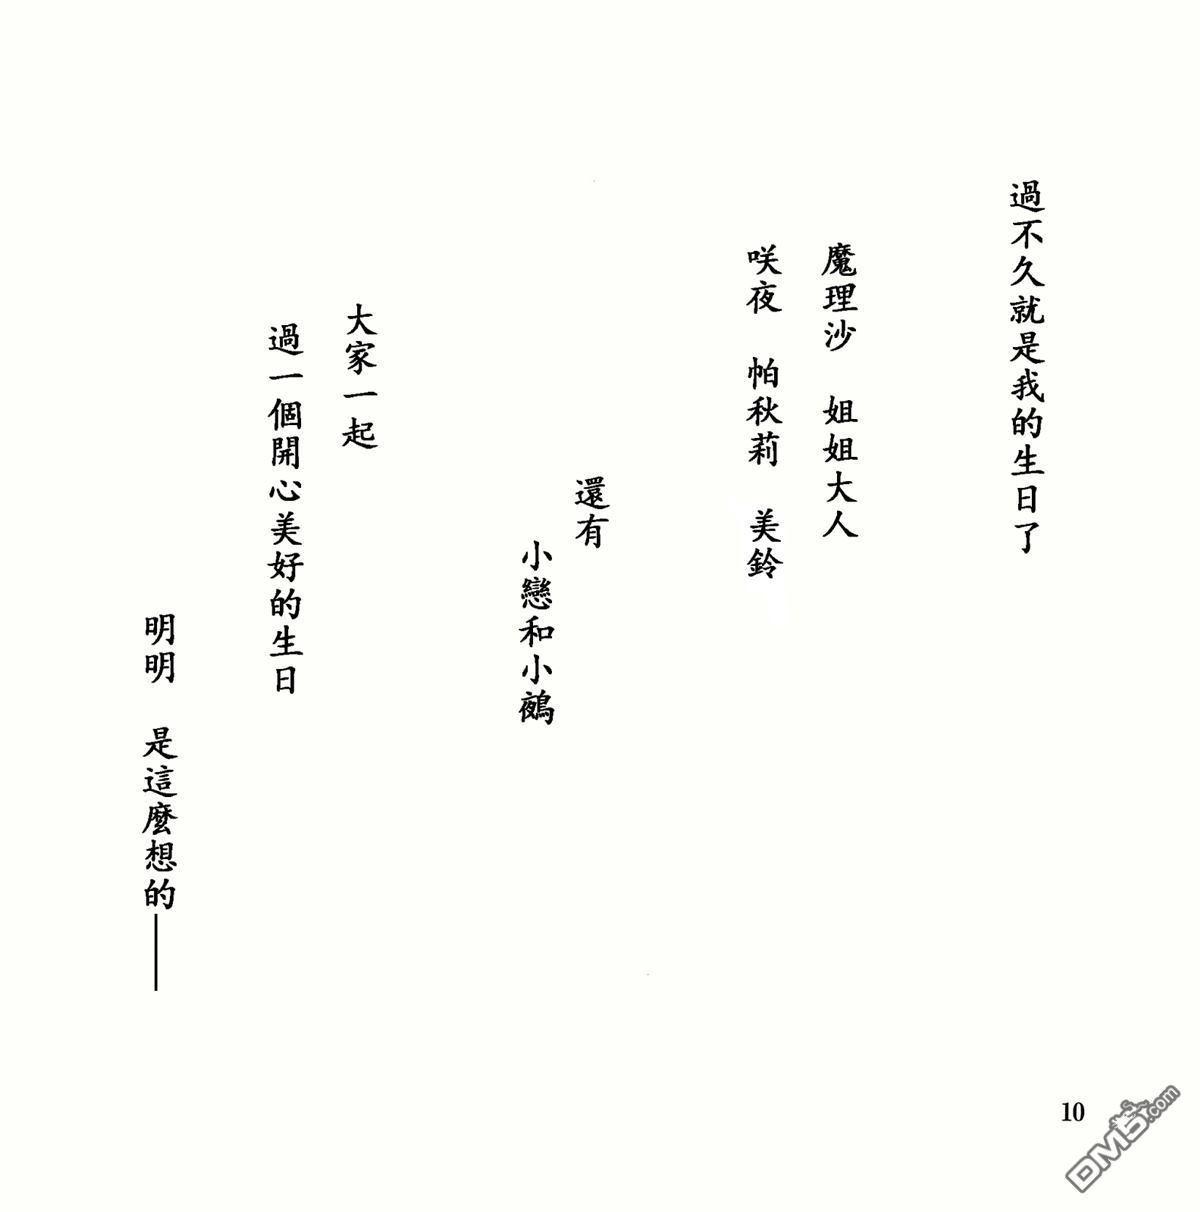 過不久就是我的生日了
魔理沙　姐姐大人
咲夜　帕秋莉　美鈴
還有
小戀和小鵺
大家一起
過一個開心美好的生日
明明　是這麼想的——
10
DM5.com